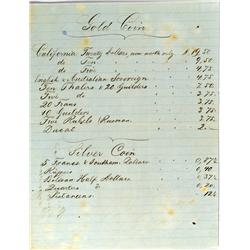 Gold Coin
California Twenty Dollars now worth only $ 19,50
do Ten " " 9,50
do Five " " 4,75
English & Australian Sovereign " 4,75
Ten Thalers & 20 Guilders " 7,75
Five do " 3,75
20 Franc " 3,75
10 Guilders " 3,75
Five Rubels Russian " 3,75
Ducat " 2,
Silver Coin
5 Francs & Southam. Dollars " 0,87½
Rupees " 0,40
Bolivian Half Dollars " 0,37½
" Quarters " 0,20
Pistareens " 12½